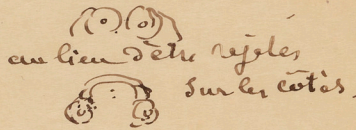 au lieu d'être rejetés
sur les côtés.